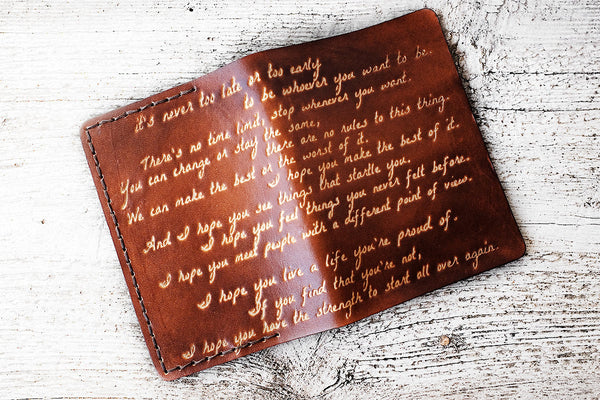 it's never too late or too early
to be whoever you want to be.
There's no time limit, stop whenever you want.
You can change or stay the same,
there are no rules to this thing.
We can make the best or the worst of it.
I hope you make the best of it.
And I hope you see things that startle you.
I hope you feel things you never felt before.
I hope you meet people with a different point of view.
I hope you live a life you're proud of.
If you find that you're not,
I hope you have the strength to start all over again.